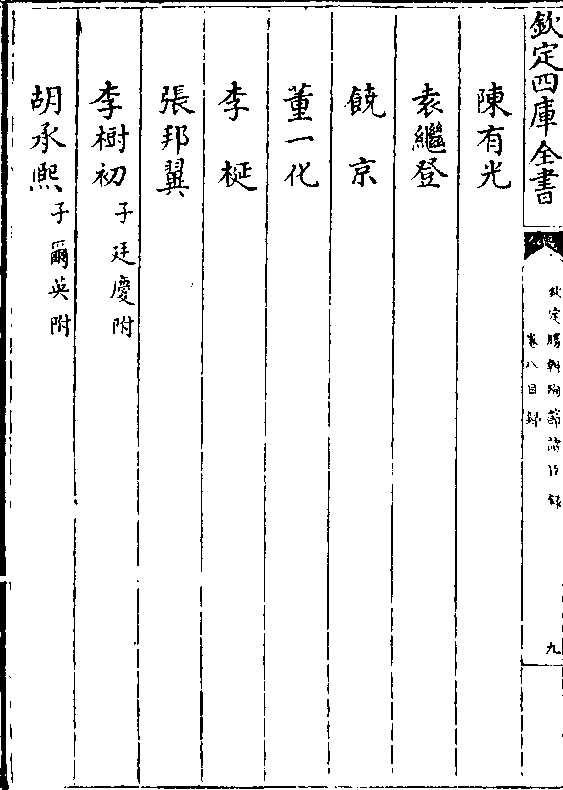 欽定四庫全書
欽定勝朝殉節諸臣錄
卷八目錄
九
陳有光
袁繼登
饒京
董一化
李梴
張邦翼
李樹初子廷慶附
胡承熙子爾英附